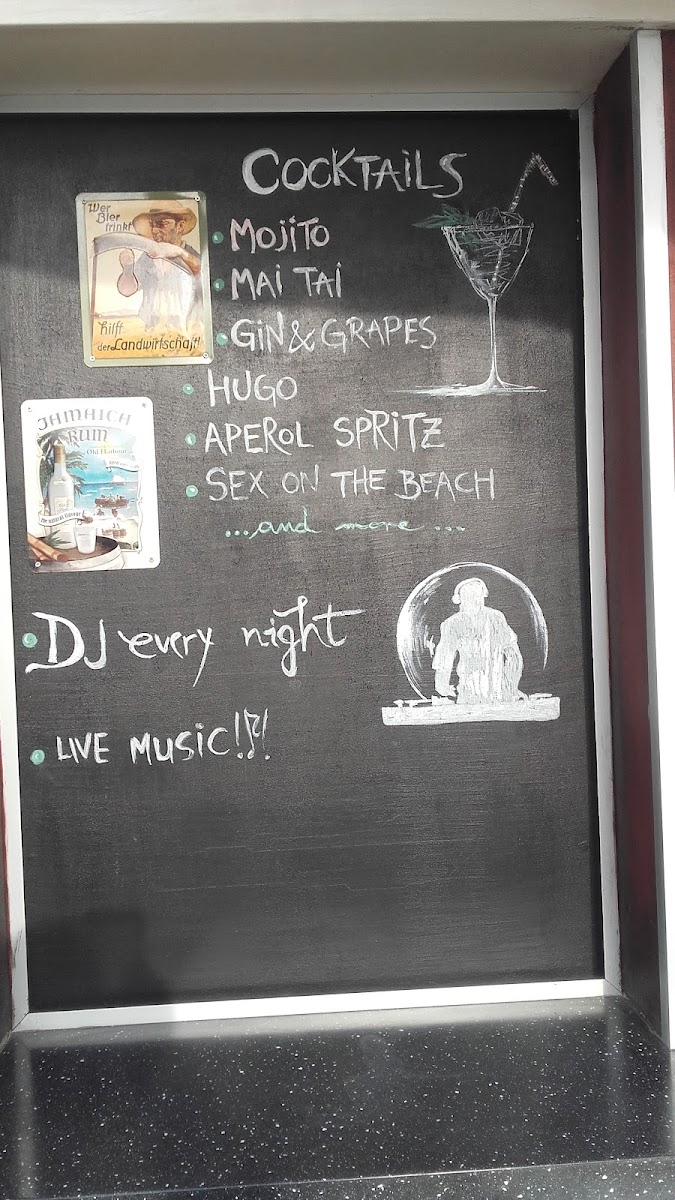 COCKTAILS
Wer
Bier
trinkt
hilft
der Landwirtschaft!
MOJITO
MAI TAI
GIN & GRAPES
HUGO
APEROL SPRITZ
SEX ON THE BEACH
...and more...
JAMAICA
RUM
Old Harbour
DJ every night
LIVE MUSIC!!